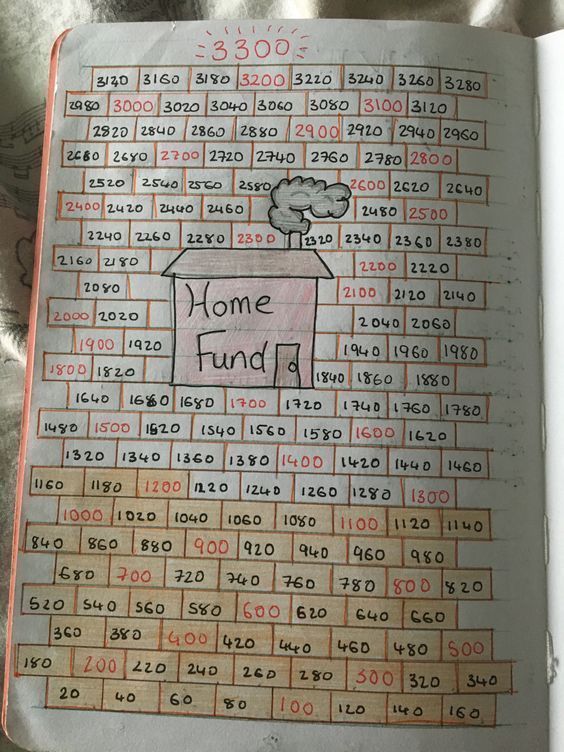 3300
3140 3160 3180 3200 3220 3240 3260 3280
2980 3000 3020 3040 3060 3080 3100 3120
2820 2840 2860 2880 2900 2920 2940 2960
2660 2680 2700 2720 2740 2760 2780 2800
2520 2540 2560 2580 2600 2620 2640
2400 2420 2440 2460 2480 2500
2240 2260 2280 2300 2320 2340 2360 2380
2160 2180 2200 2220
2080 2100 2120 2140
Home
2000 2020 2040 2060
1900 1920 1940 1960 1980
Fund
1800 1820 1840 1860 1880
1640 1660 1680 1700 1720 1740 1760 1780
1480 1500 1520 1540 1560 1580 1600 1620
1320 1340 1360 1380 1400 1420 1440 1460
1160 1180 1200 1220 1240 1260 1280 1300
1000 1020 1040 1060 1080 1100 1120 1140
840 860 880 900 920 940 960 980
680 700 720 740 760 780 800 820
520 540 560 580 600 620 640 660
360 380 400 420 440 460 480 500
180 200 220 240 260 280 300 320 340
20 40 60 80 100 120 140 160